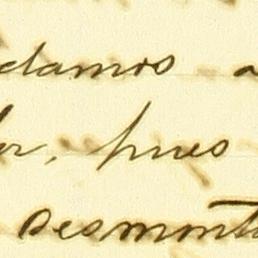 damos a
or, pues
desmont